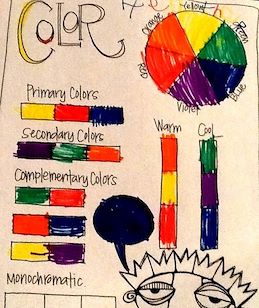 COLOR
Yellow
Orange
Green
Red
Blue
Violet
Primary Colors
Secondary Colors
Complementary Colors
Monochromatic
Warm
Cool